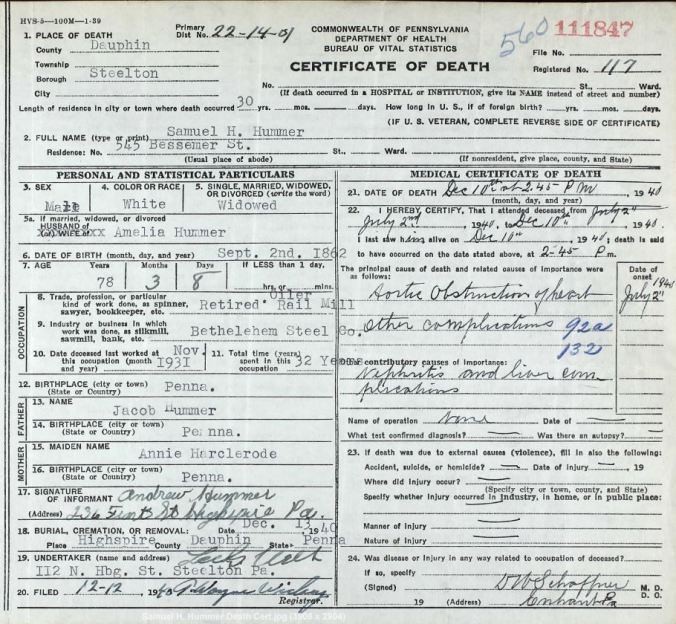 HVS-5-100M-1-39
1. PLACE OF DEATH
County Dauphin
Township
Borough Steelton
City
Primary Dist No. 22-14-01
COMMONWEALTH OF PENNSYLVANIA
DEPARTMENT OF HEALTH
BUREAU OF VITAL STATISTICS
CERTIFICATE OF DEATH
560 111847
File No.
Registered No. 117
No. St., Ward.
(If death occurred in a HOSPITAL or INSTITUTION, give its NAME instead of street and number)
Length of residence in city or town where death occurred 30 yrs. mos. days. How long in U. S., if of foreign birth? yrs. mos. days.
(IF U. S. VETERAN, COMPLETE REVERSE SIDE OF CERTIFICATE)
2. FULL NAME (type or print) Samuel H. Hummer
Residence: No. 545 Bessemer St. St., Ward.
(Usual place of abode) (If nonresident, give place, county, and State)
PERSONAL AND STATISTICAL PARTICULARS
3. SEX Male
4. COLOR OR RACE White
5. SINGLE, MARRIED, WIDOWED, OR DIVORCED (write the word) Widowed
5a. If married, widowed, or divorced
HUSBAND of
(or) WIFE of Amelia Hummer
6. DATE OF BIRTH (month, day, and year) Sept. 2nd. 1862
7. AGE Years Months Days If LESS than 1 day,
78 3 8 hrs. or min.
OCCUPATION
8. Trade, profession, or particular
kind of work done, as spinner,
sawyer, bookkeeper, etc. Retired Oiler Rail Mill
9. Industry or business in which
work was done, as silkmill,
sawmill, bank, etc. Bethelehem Steel Co.
10. Date deceased last worked at
this occupation (month Nov. 1931
11. Total time (years)
spent in this
occupation 32 Years
12. BIRTHPLACE (city or town)
(State or Country) Penna.
FATHER
13. NAME Jacob Hummer
14. BIRTHPLACE (city or town)
(State or Country) Penna.
MOTHER
15. MAIDEN NAME Annie Harclerode
16. BIRTHPLACE (city or town)
(State or Country) Penna.
17. SIGNATURE
OF INFORMANT Andrew Hummer
(Address) 236 St Highspire Pa.
18. BURIAL, CREMATION, OR REMOVAL: Date Dec. 13 1940
Place Highspire County Dauphin State Penna
19. UNDERTAKER (name and address)
112 N. Hbg. St. Steelton Pa.
20. FILED 12-12, 1940 Wayne
Registrar.
MEDICAL CERTIFICATE OF DEATH
21. DATE OF DEATH Dec 10th at 2.45 P M, 1940
(month, day, and year)
22. I HEREBY CERTIFY, That I attended deceased from July 2"
July 2nd, 1940, to Dec 10th, 1940.
I last saw him alive on Dec 10th 1940; death is said
to have occurred on the date stated above, at 2-45 P m.
The principal cause of death and related causes of importance were
as follows:
Date of onset
1940
July 2"
Aortic Obstruction of heart
Other complications 92a
132
Other contributory causes of importance:
Nephritis and liver com
plications
Name of operation None Date of
What test confirmed diagnosis? Was there an autopsy?
23. If death was due to external causes (violence), fill in also the following:
Accident, suicide, or homicide? Date of injury, 19
Where did injury occur?
(Specify city or town, county, and State)
Specify whether injury occurred in industry, in home, or in public place:
Manner of injury
Nature of injury
24. Was disease or injury in any way related to occupation of deceased?
If so, specify
(Signed) D W Schaffner M. D.
D. O.
19 (Address) Enhaut Pa
Samuel H. Hummer Death Cert.jpg